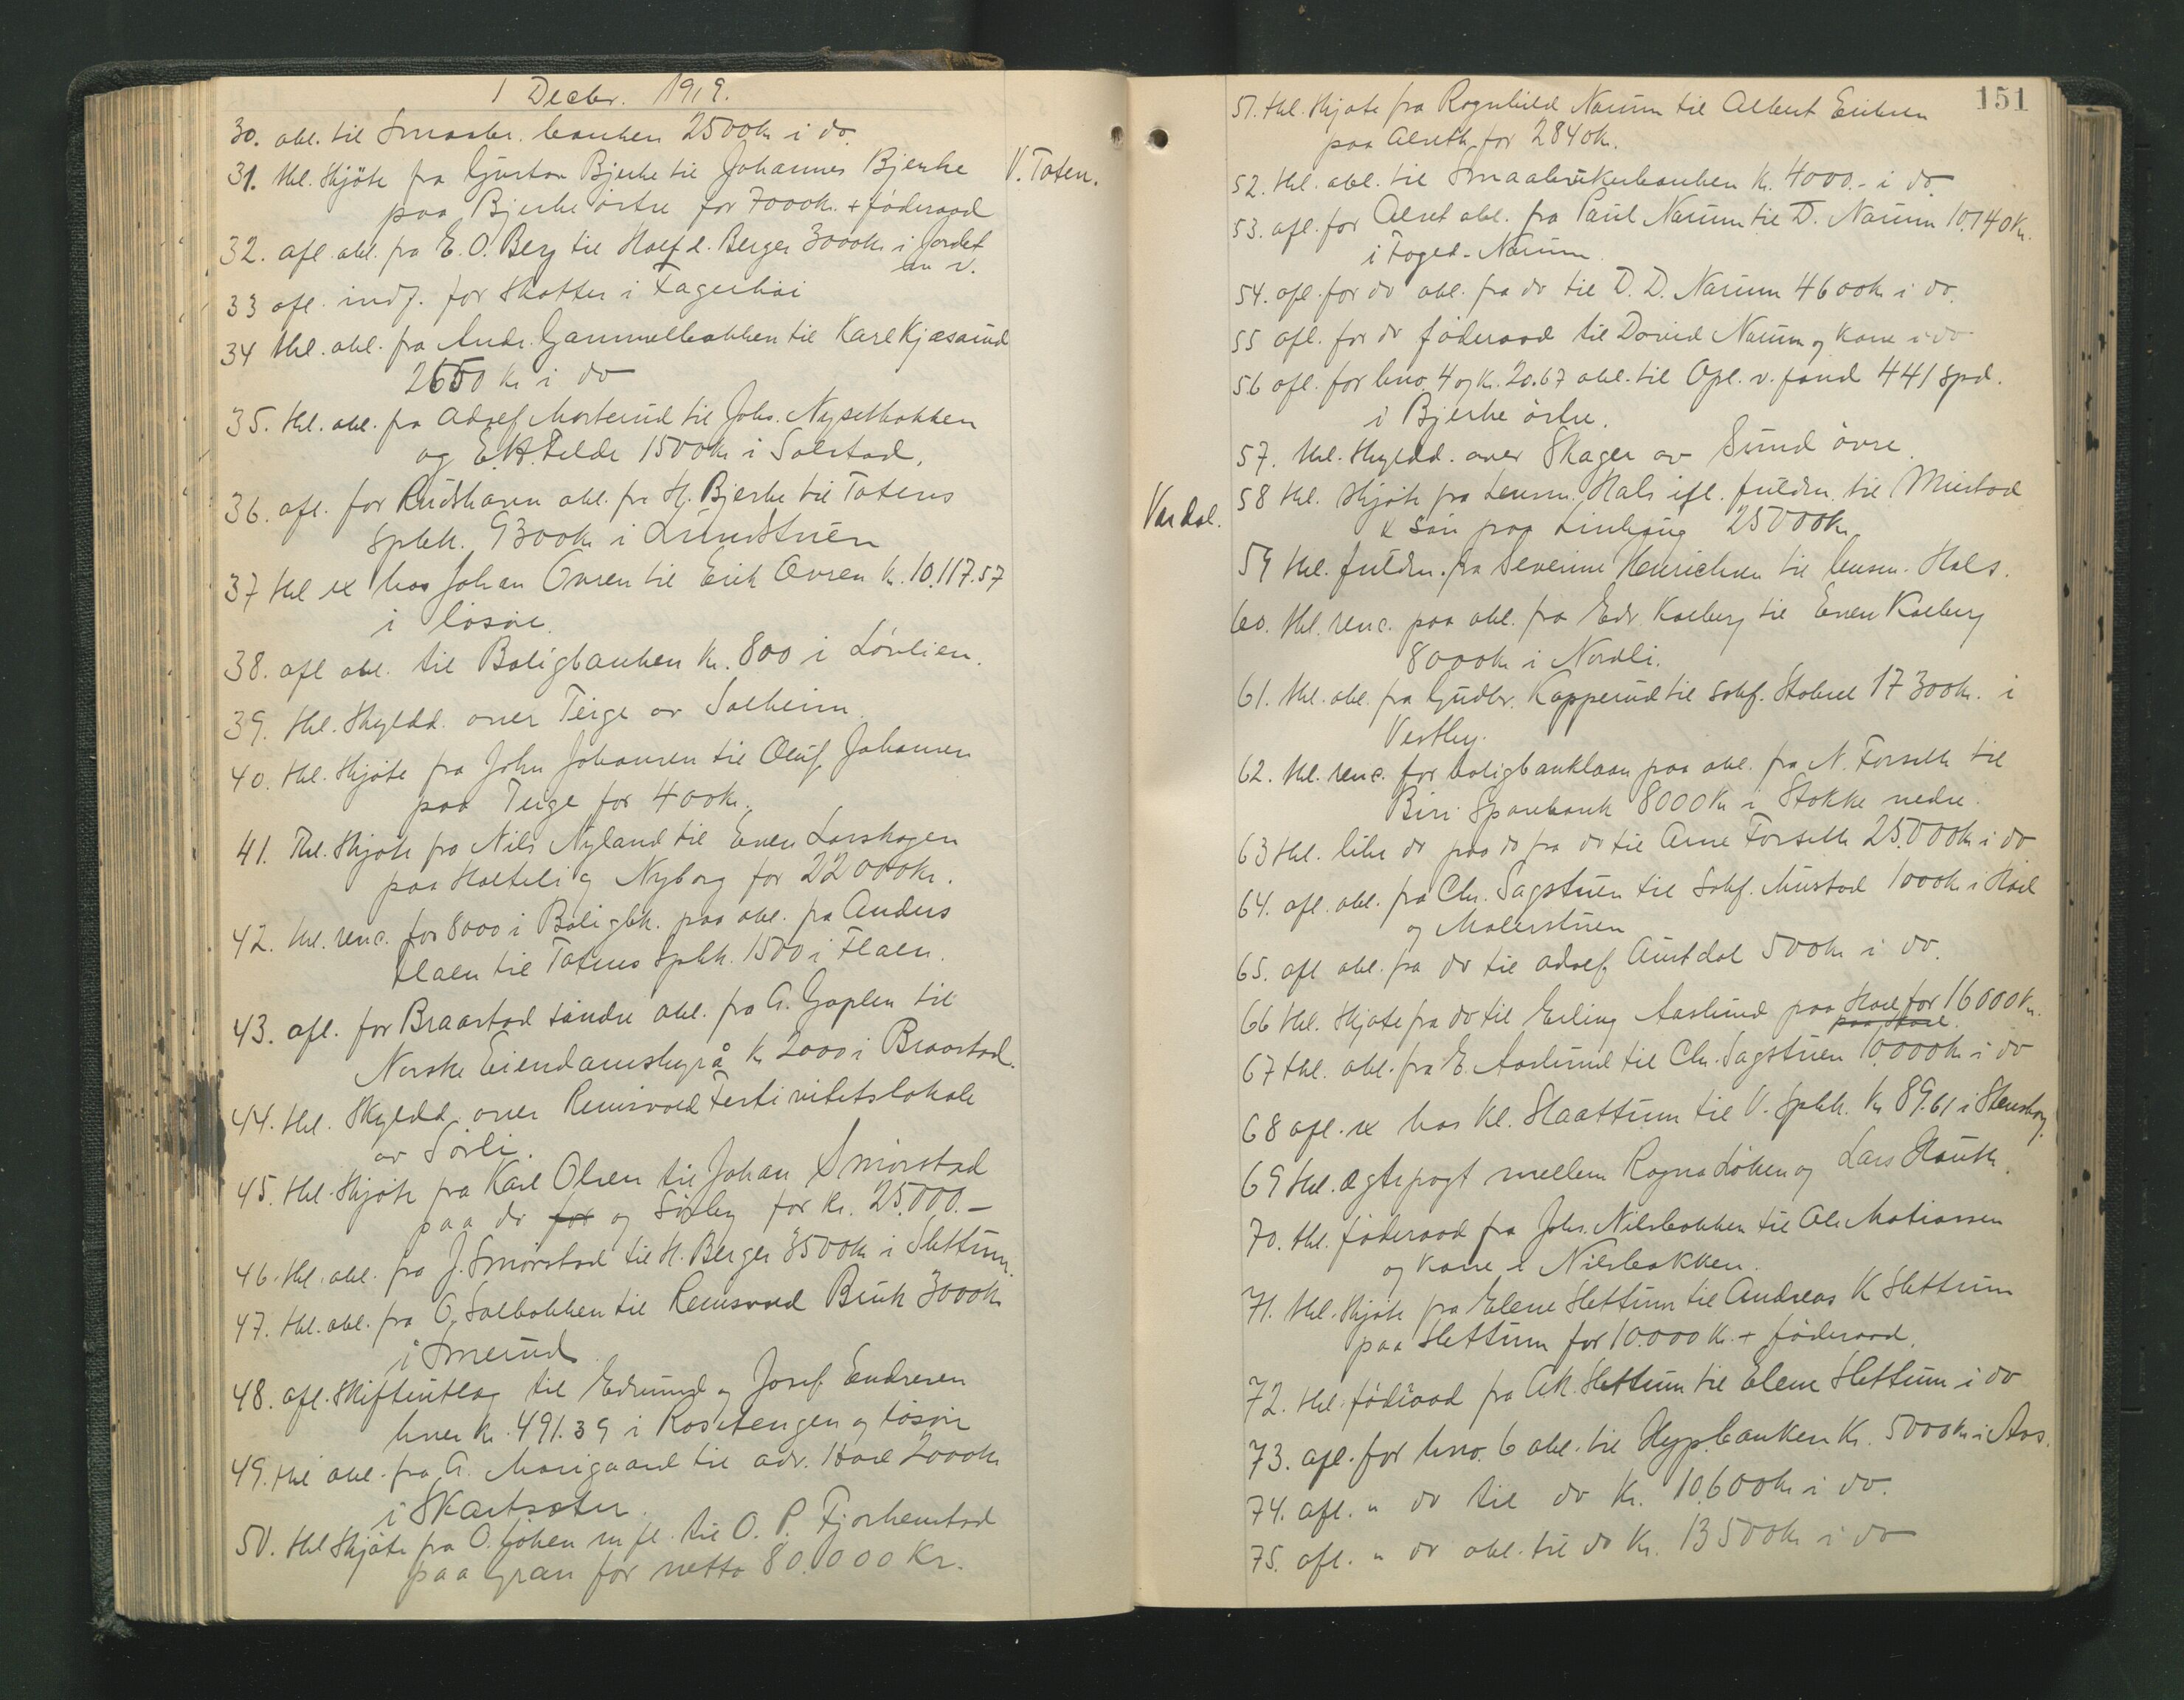 1 Decbr. 1919.
30. obl. til Smaabr. banken 2500 kr i do.
31. thl. Skjöte fra Gustav Bjerke til Johannes Bjerke V. Toten.
paa Bjerke östre for 7000 kr. + föderaad
32. afl. obl. fra E. O. Berg til Half d. Berger 3000 kr i Jordet
33 afl. indf. for Skatter i Fagerhöi
34 thl. obl. fra Andr. Gammelbakken til Karl Kjæsrud
2650 kr i do
35. thl. obl. fra Adolf Morterud til Johs. Nysetbakken
og E. H. Felde 1500 kr i Solstad.
36. afl. for Rudshagen obl. fra H. Bjerke til Totens
Spbk. 9300 kr i Lundstuen
37 thl ex hos Johan Ovren til Erik Ovren kr. 10.117.57
i lösöre.
38. afl obl. til Boligbanken kr. 800 i Lövlien.
39. thl. Skyldd. over Teige av Solheim.
40. thl. Skjöte fra John Johansen til Oluf Johansen
paa Teige for 400 kr.
41. Thl. Skjöte fra Nils Nyland til Even Larshagen
paa Holteli og Nyborg for 22000 kr.
42. thl. renc. for 8000 i Boligbk. paa obl. fra Anders
Flaen til Totens Spbk. 1500 i Flaen.
43. afl. for Braastad söndre obl. fra A. Gaplen til
Norske Eiendomsbyrå kr 2000 i Braastad.
44. thl. Skyldd. over Reinsvold Festivitetslokale
av Sörli.
45. thl. Skjöte fra Karl Olsen til Johan Smörstad
paa do for og Sörby for kr. 25.000.-
46. thl. obl. fra J. Smörstad til H. Berger 3500 kr i Slettum.
47. thl. obl. fra O. Solbakken til Reinsvold Bruk 3000 kr
i Smerud
48. afl. Skifteutlæg til Edmund og Josef Endresen
hver kr. 491.39 i Rosetengen og lösöre
49. thl obl. fra A. Marigaard til adv. Hoel 2000 kr
i Skartsæter.
50. thl Skjöte fra O. Löken m fl. til O. P. Fjorkenstad
paa Gran for netto 80.000 Kr.
151
51. thl. Skjöte fra Ragnhild Narum til Albert Eriksen
paa Alseth for 2840 kr.
52. thl. obl. til Smaabrukerbanken kr. 4000.- i do.
53. afl. for Alset obl. fra Paul Narum til D. Narum 10.140 kr.
i Foged-Narum.
54. afl. for do obl. fra do til D. D. Narum 4600 kr i do.
55 afl. for do föderaad til David Narum og kone i do
56 afl. for bno. 4 og kr. 20.67 obl. til Opl. v. fond 441 spd.
i Bjerke östre.
57. thl. Skyldd. over Skager av Sund övre.
Vardal. 58 thl. Skjöte fra Lensm. Hals ifl. fuldm. til Mustad
& Sön paa Linhaug 25000 kr
59 thl. fuldm. fra Severine Henrichsen til lensm. Hals.
60. thl. renc. paa obl. fra Edv. Kolberg til Even Kolberg
8000 kr i Nordli.
61. thl. obl. fra Gudbr. Kopperud til Sokf. Stabel 17300 kr. i
Vestby.
62. thl. renc. for boligbanklaan paa obl. fra N. Forseth til
Biri Sparebank 8000 kr i Stokke nedre.
63 thl. like do paa do fra do til Arne Forseth 25.000 kr i do
64. afl. obl. fra Chr. Sagstuen til Sokf. Mustad 1000 kr i Hoel
og Malerstuen
65. afl obl. fra do til Adolf Austdal 500 kr i do.
66 thl. Skjöte fra do til Erling Aaslund paa Hoel for 16000 kr.
paa Hoel.
67 thl. obl. fra E. Aaslund til Chr. Sagstuen 10.000 kr i do
68 afl. ex hos Kl. Slaattum til V. Spbk. kr 89.61 i Stensborg.
69 thl. Ægtepagt mellem Ragna Löken og Lars Hauth.
70. thl. föderaad fra Johs. Nilsbakken til Ole Matiassen
og kone i Nilsbakken.
71. thl. Skjöte fra Elene Slettum til Andreas K Slettum
paa Slettum for 10.000 kr. + föderaad.
72. thl. föderaad fra A K. Slettum til Elene Slettum i do
73. afl. for bno. 6 obl. til Hyp.banken Kr. 5000 kr i Aas.
74. afl. " do til do Kr. 10.600 kr i do.
75. afl. " do obl. til do Kr. 13500 kr i do